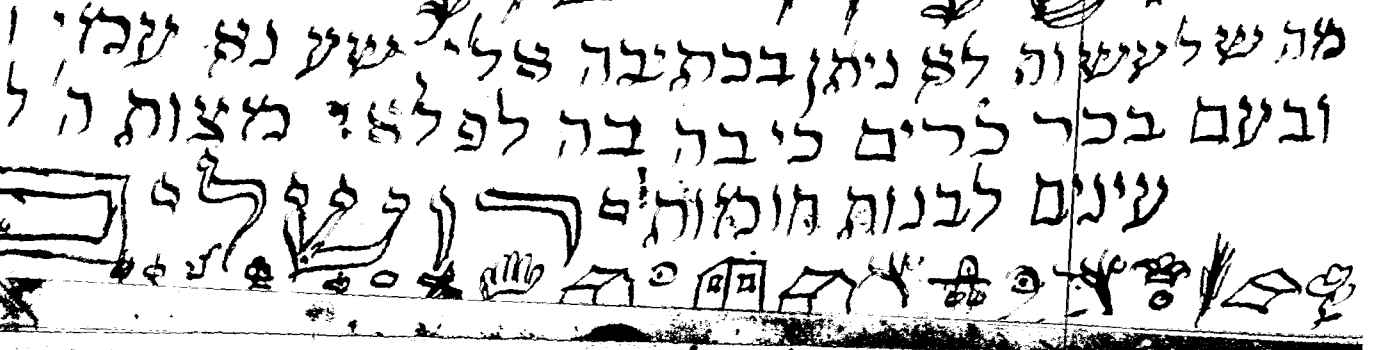 מה שלעשוה לא ניתן בכתיבה אלי ישע נא עמי
ובעם בכר כרים כי בה בה לפלאי מצות ה ל
עינים לבנות חומות ירושלים